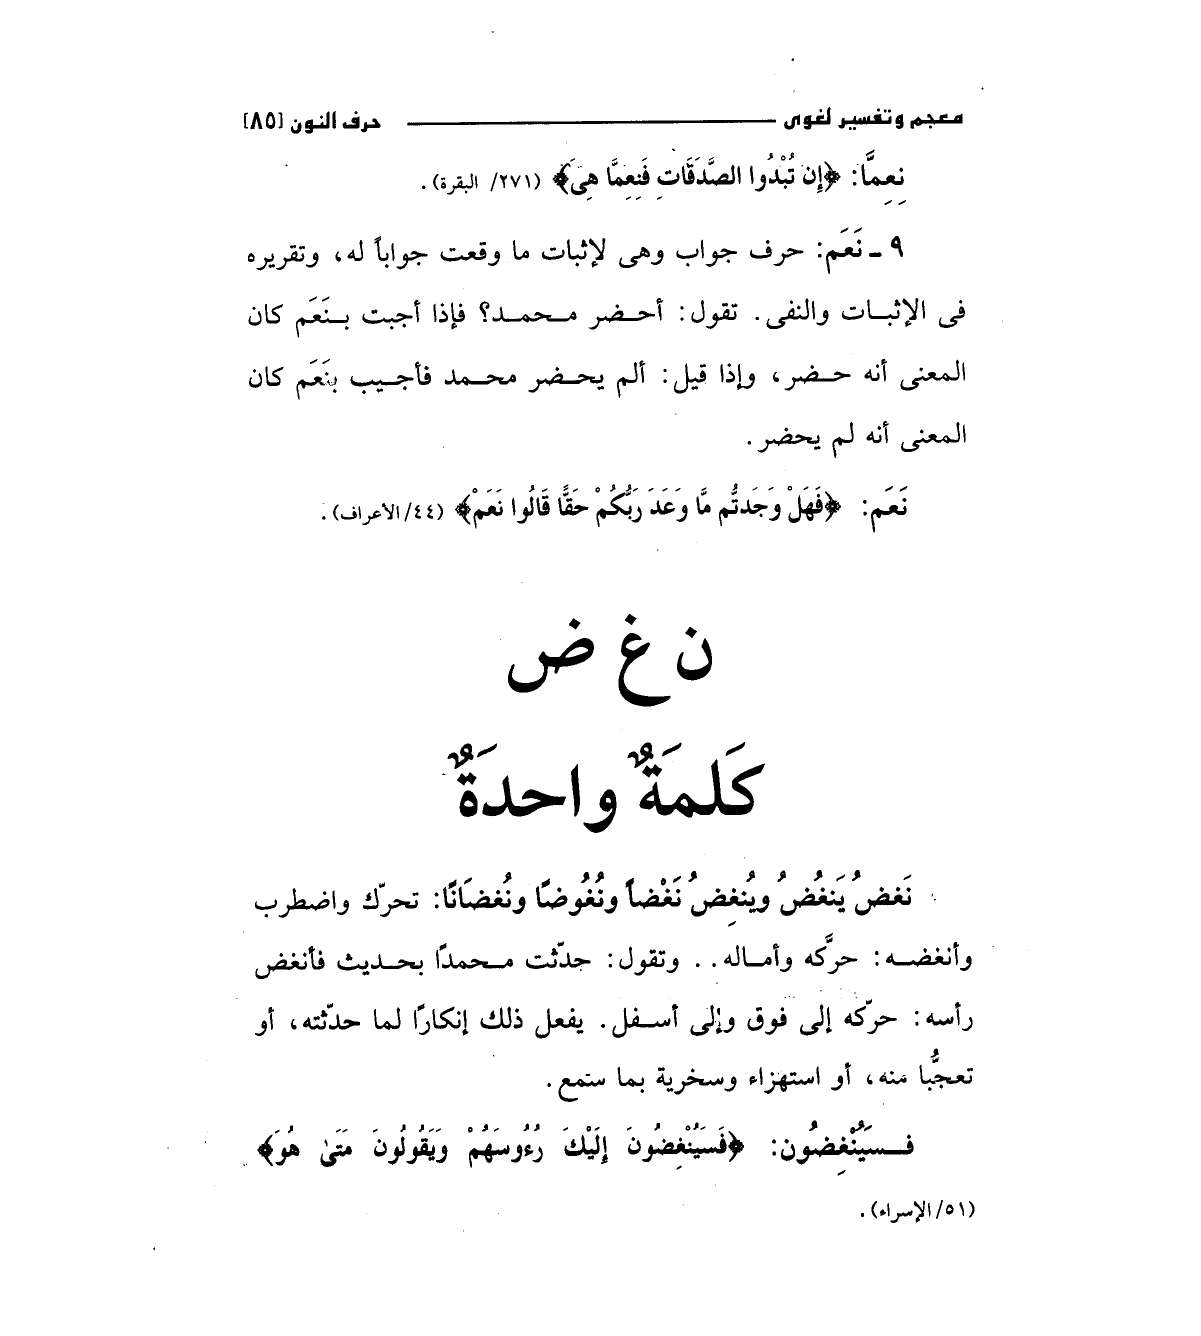 معجم وتفسير لغوى ــــــــــــــــ حرف النون [٨٥]
نِعِمَّا: ﴿إِن تُبْدُوا الصَّدَقَاتِ فَنِعِمَّا هِيَ﴾ (٢٧١/ البقرة).
٩ ـ نَعَم: حرف جواب وهى لإثبات ما وقعت جواباً له، وتقريره
فى الإثبات والنفى. تقول: أحضر محمد؟ فإذا أجبت بنَعَم كان
المعنى أنه حضر، وإذا قيل: ألم يحضر محمد فأجيب بنَعَم كان
المعنى أنه لم يحضر.
نَعَم: ﴿فَهَلْ وَجَدتُّم مَّا وَعَدَ رَبُّكُمْ حَقًّا قَالُوا نَعَمْ﴾ (٤٤/الأعراف).
ن غ ض
كَلمَةٌ واحدَةٌ
نَغضُ يَنغُضُ ويُنغِضُ نَغْضاً ونُغُوضًا ونُغضَانًا: تحرّك واضطرب
وأنغضه: حرَّكه وأماله.. وتقول: حدّثت محمدًا بحديث فأنغض
رأسه: حرّكه إلى فوق وإلى أسفل. يفعل ذلك إنكارًا لما حدّثته، أو
تعجُّبا منه، أو استهزاء وسخرية بما سمع.
فسَيُنْغِضُون: ﴿فَسَيُنْغِضُونَ إِلَيْكَ رُءُوسَهُمْ وَيَقُولُونَ مَتَىٰ هُوَ﴾
(٥١/الإسراء).